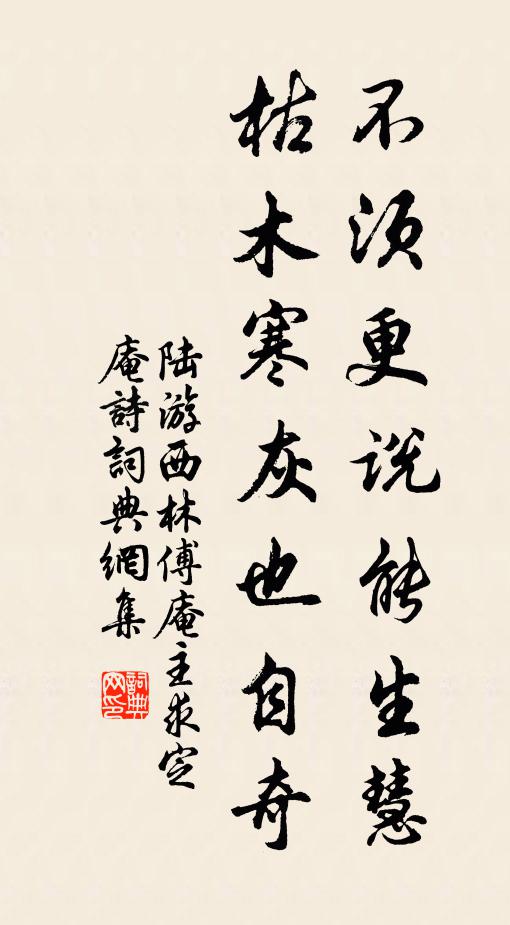 不须更说能生慧
枯木寒灰也自奇
陆游西林傅庵主求定
庵詩詞典網集
詞典网印